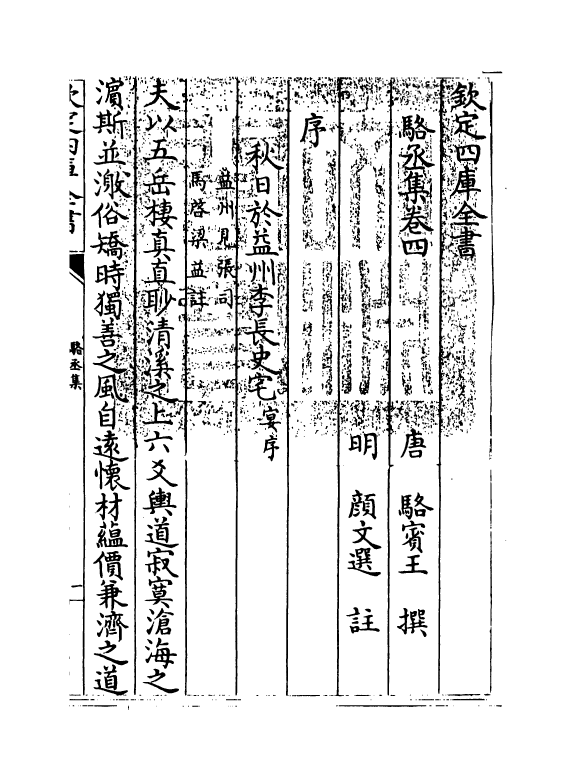 欽定四庫全書
駱丞集卷四
唐 駱賓王 撰
明 顔文選 註
序
秋日於益州李長史宅宴序
益州見張司
馬啓梁益註
夫以五岳棲真直聊清溪之上六爻輿道寂寞滄海之
濵斯並激俗矯時獨善之風自遠懷材蘊價兼濟之道
欽定四庫全書
駱丞集